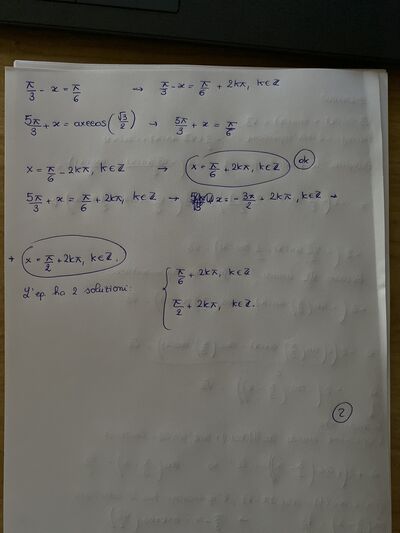 π/3 - x = π/6 → π/3 - x = π/6 + 2kπ, k∈ℤ
5π/3 + x = arccos(√3/2) → 5π/3 + x = π/6
x = π/6 - 2kπ, k∈ℤ → x = π/6 + 2kπ, k∈ℤ ok
5π/3 + x = π/6 + 2kπ, k∈ℤ → x = - 3π/2 + 2kπ, k∈ℤ →
→ x = π/2 + 2kπ, k∈ℤ.
L'eq. ha 2 soluzioni: { π/6 + 2kπ, k∈ℤ
π/2 + 2kπ, k∈ℤ.
2